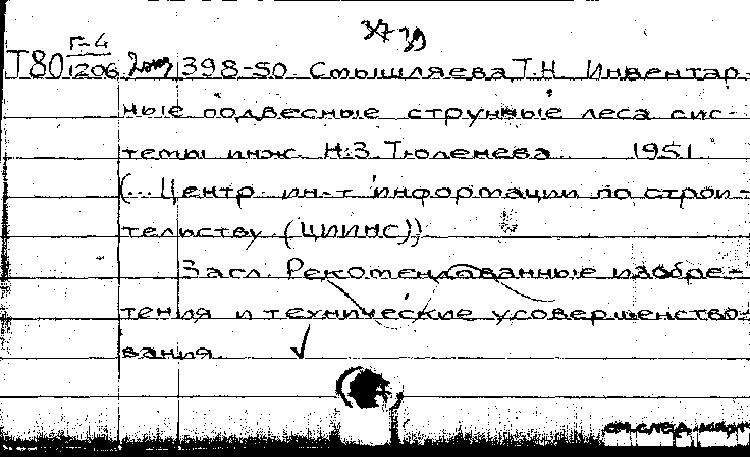 37 39
Г-4
Т80 1206 398-50 Смышляева, Т.Н. Инвентар-
ные подвесные струнные леса сис-
темы инж. Н.З. Тюленева. 1951.
(... Центр. ин-т информации по строи-
тельству (ЦИИНС))
Засл. Рекомендованные изобре-
тения и технические усовершенство-
вания.
см. след. карт